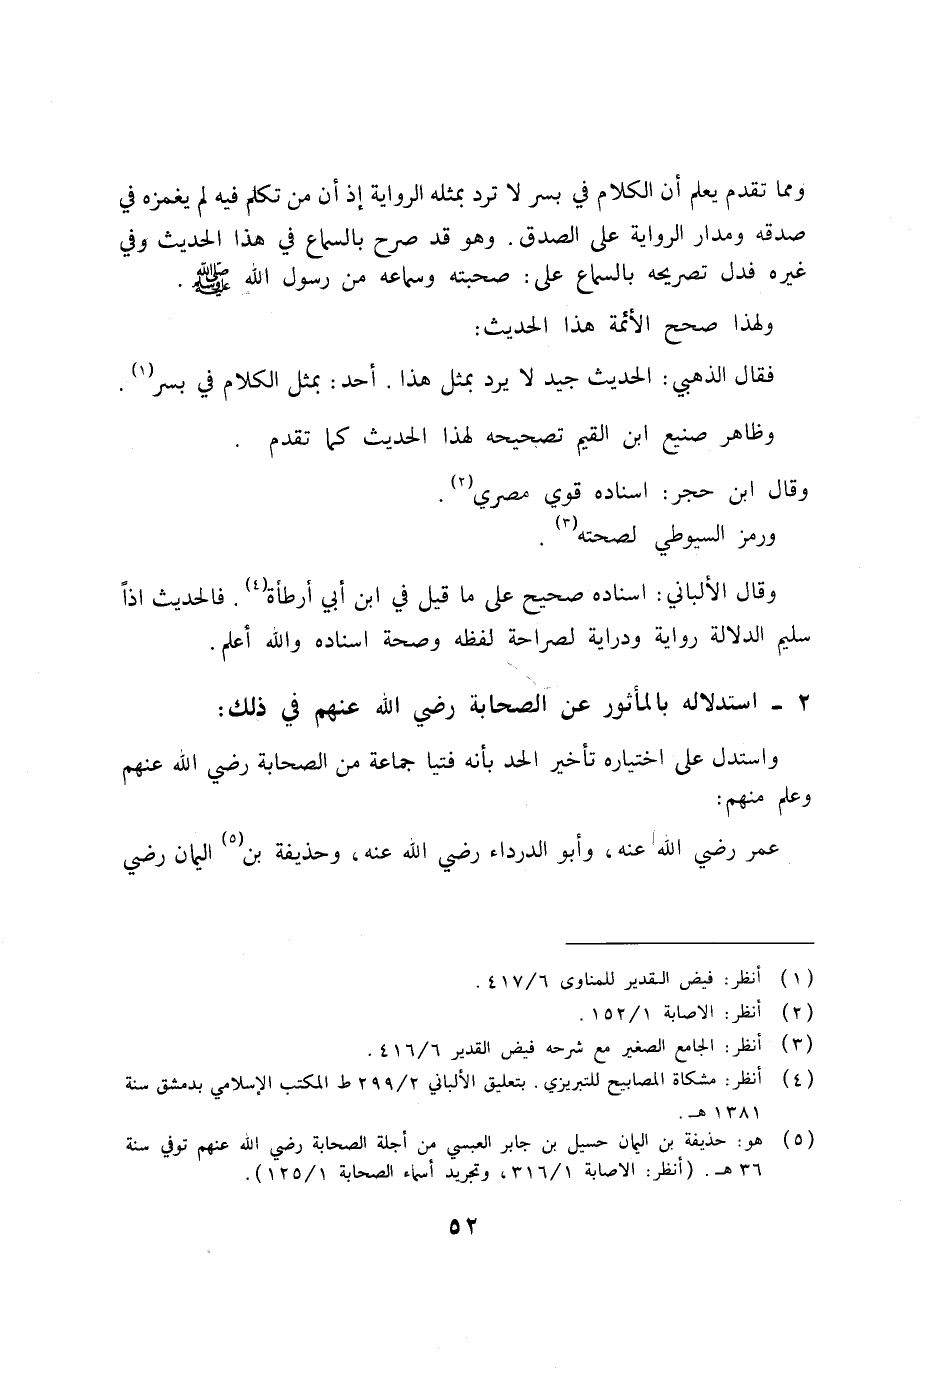 ومما تقدم يعلم أن الكلام في بسر لا ترد بمثله الرواية إذ أن من تكلم فيه لم يغمزه في
صدقه ومدار الرواية على الصدق. وهو قد صرح بالسماع في هذا الحديث وفي
غيره فدل تصريحه بالسماع على: صحبته وسماعه من رسول الله ﷺ.
ولهذا صحح الأئمة هذا الحديث:
فقال الذهبي: الحديث جيد لا يرد بمثل هذا. أحد: بمثل الكلام في بسر(١).
وظاهر صنيع ابن القيم تصحيحه لهذا الحديث كما تقدم .
وقال ابن حجر: اسناده قوي مصري(٢).
ورمز السيوطي لصحته(٣).
وقال الألباني: اسناده صحيح على ما قيل في ابن أبي أرطأة(٤). فالحديث اذاً
سليم الدلالة رواية ودراية لصراحة لفظه وصحة اسناده والله أعلم.
٢ - استدلاله بالمأثور عن الصحابة رضي الله عنهم في ذلك:
واستدل على اختياره تأخير الحد بأنه فتيا جماعة من الصحابة رضي الله عنهم
وعلم منهم:
عمر رضي الله عنه، وأبو الدرداء رضي الله عنه، وحذيفة بن(٥) اليمان رضي
(١) أنظر: فيض القدير للمناوى ٤١٧/٦.
(٢) أنظر: الاصابة ١٥٢/١.
(٣) أنظر: الجامع الصغير مع شرحه فيض القدير ٤١٦/٦.
(٤) أنظر: مشكاة المصابيح للتبريزي. بتعليق الألباني ٢٩٩/٢ ط المكتب الإسلامي بدمشق سنة
١٣٨١ هـ.
(٥) هو: حذيفة بن اليمان حسيل بن جابر العبسي من أجلة الصحابة رضي الله عنهم توفي سنة
٣٦ هـ. (أنظر: الاصابة ٣١٦/١، وتجريد أسماء الصحابة ١٢٥/١).
٥٢